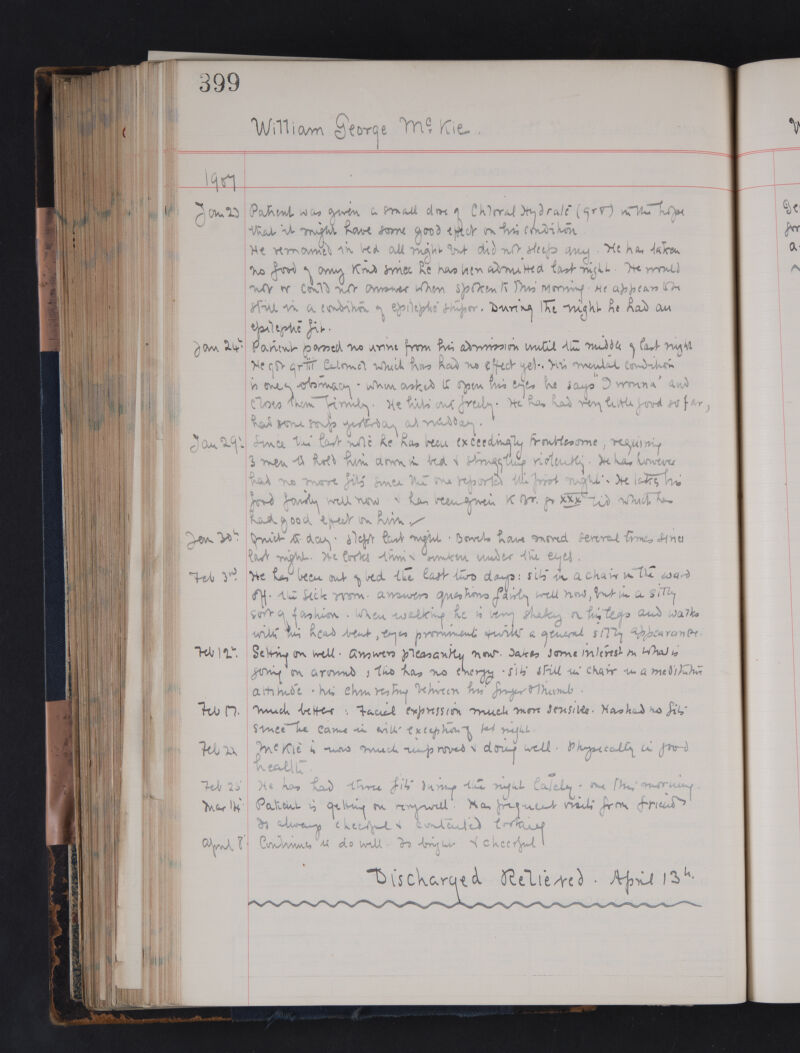 399
William George McKie.
1907
Jan 23 Patient was given a small dose of Chloral Hydrate (gr v) in the hope
that it might have some good effect on his condition.
He remained in bed all night but did not sleep any. He has taken
no food of any kind since he has been admitted last night. He would
not or could not answer when spoken to this morning. He appears to be
still in a condition of epileptic stupor. During the night he had an
epileptic fit.
Jan 24th Patient passed no urine from his admission until the middle of last night
He got gr III Calomel which has had no effect yet. His mental condition
is one of obstinacy. when asked to open his eyes he says "I winna" and
closes them firmly. He hits out freely. He has had very little food so far,
had some soup yesterday at midday.
Jan 29th Since the last note he has been exceedingly troublesome, requiring
3 men to hold him down in bed & struggling violently. He has however
had no more fits since the one reported the first night. He takes his
food fairly well now & has been given K Br. gr xxx tid which has
had good effect on him
Jan 30th Quiet to day. Slept last night. Bowels have moved several times since
last night. He looks thin & sunken under the eyes.
Feb 3rd He has been out of bed the last two days: sits in a chair in the ward
off the sick room. answers questions fairly well now, but in a silly
sort of fashion. When walking he is very shaky on his legs and walks
with his head bent, eyes prominent & with a general silly appearance.
Feb 12th Getting on well. answers pleasantly now. Takes some interest in what is
going on around; tho has no energy. sits still in chair in a meditative
attitude. his chin resting between his finger & thumb.
Feb 17. Much better: Facial expression much more sensible. Has had no fits
since he came in with exception of 1st night.
Feb 22 McKie is now much improved & doing well. Physically in good
health.
Feb 25 He has had three fits during the night lately - one this morning.
Mar 14 Patient is getting on very well. Has frequent visits from friends
Is always cheerful & contented looking
April 8 Continues to do well. Is bright & cheerful
Discharged Relieved. April 13th.